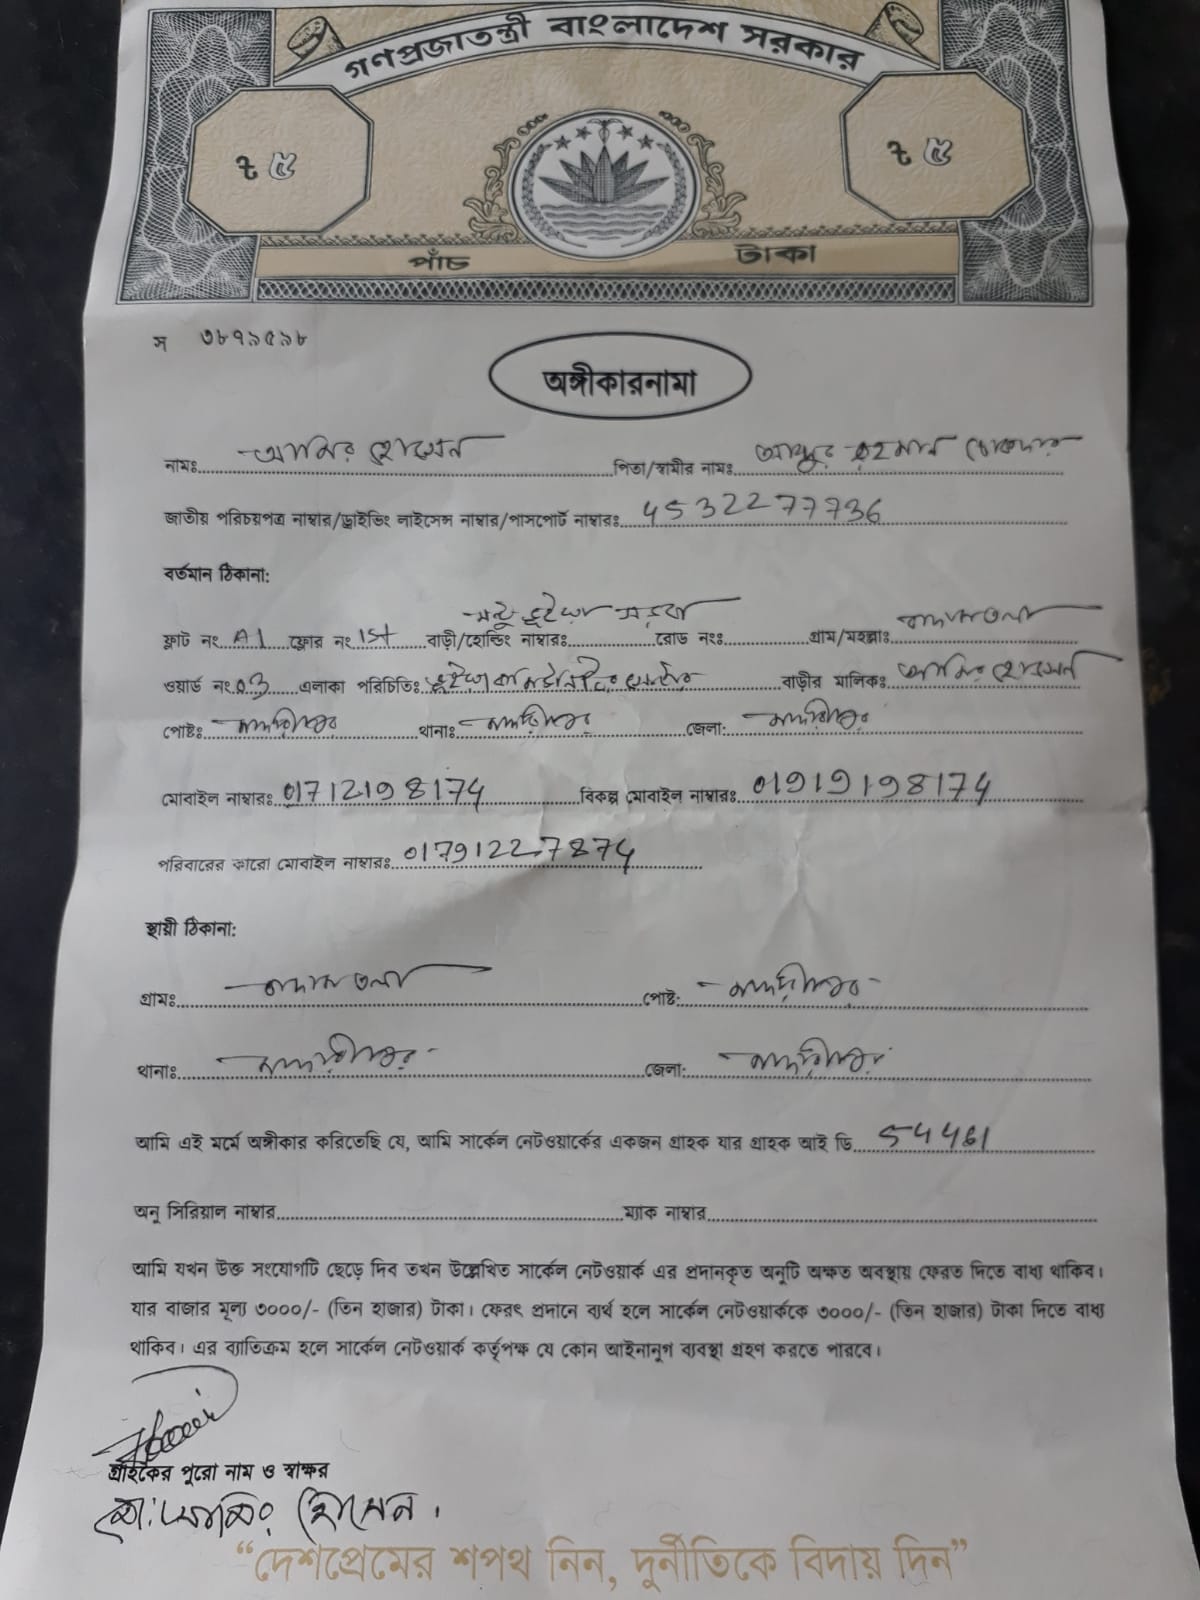 গণপ্রজাতন্ত্রী বাংলাদেশ সরকার
৳ ৫ ৳ ৫
পাঁচ টাকা
স ৩৮৭৯৫৯৮
অঙ্গীকারনামা
নামঃ আমির হোসেন পিতা/স্বামীর নামঃ আব্দুর রহমান
জাতীয় পরিচয়পত্র নাম্বার/ড্রাইভিং লাইসেন্স নাম্বার/পাসপোর্ট নাম্বারঃ 4532277736
বর্তমান ঠিকানা:
ফ্লাট নং A1 ফ্লোর নং 1st বাড়ী/হোল্ডিং নাম্বারঃ রোড নংঃ গ্রাম/মহল্লাঃ
ওয়ার্ড নং 03 এলাকা পরিচিতিঃ ভূইয়া কমিউনিটি সেন্টার বাড়ীর মালিকঃ আমির হোসেন
পোষ্টঃ মাদারীপুর থানাঃ মাদারীপুর জেলা: মাদারীপুর
মোবাইল নাম্বারঃ 01712198174 বিকল্প মোবাইল নাম্বারঃ 01919198174
পরিবারের কারো মোবাইল নাম্বারঃ 01791227874
স্থায়ী ঠিকানা:
গ্রামঃ পোষ্ট: মাদারীপুর
থানাঃ মাদারীপুর জেলা: মাদারীপুর
আমি এই মর্মে অঙ্গীকার করিতেছি যে, আমি সার্কেল নেটওয়ার্কের একজন গ্রাহক যার গ্রাহক আই ডি 54461
অনু সিরিয়াল নাম্বার ম্যাক নাম্বার
আমি যখন উক্ত সংযোগটি ছেড়ে দিব তখন উল্লেখিত সার্কেল নেটওয়ার্ক এর প্রদানকৃত অনুটি অক্ষত অবস্থায় ফেরত দিতে বাধ্য থাকিব।
যার বাজার মূল্য ৩০০০/- (তিন হাজার) টাকা। ফেরৎ প্রদানে ব্যর্থ হলে সার্কেল নেটওয়ার্ককে ৩০০০/- (তিন হাজার) টাকা দিতে বাধ্য
থাকিব। এর ব্যতিক্রম হলে সার্কেল নেটওয়ার্ক কর্তৃপক্ষ যে কোন আইনানুগ ব্যবস্থা গ্রহণ করতে পারবে।
গ্রাহকের পুরো নাম ও স্বাক্ষর
মো: আমির হোসেন।
“দেশপ্রেমের শপথ নিন, দুর্নীতিকে বিদায় দিন”